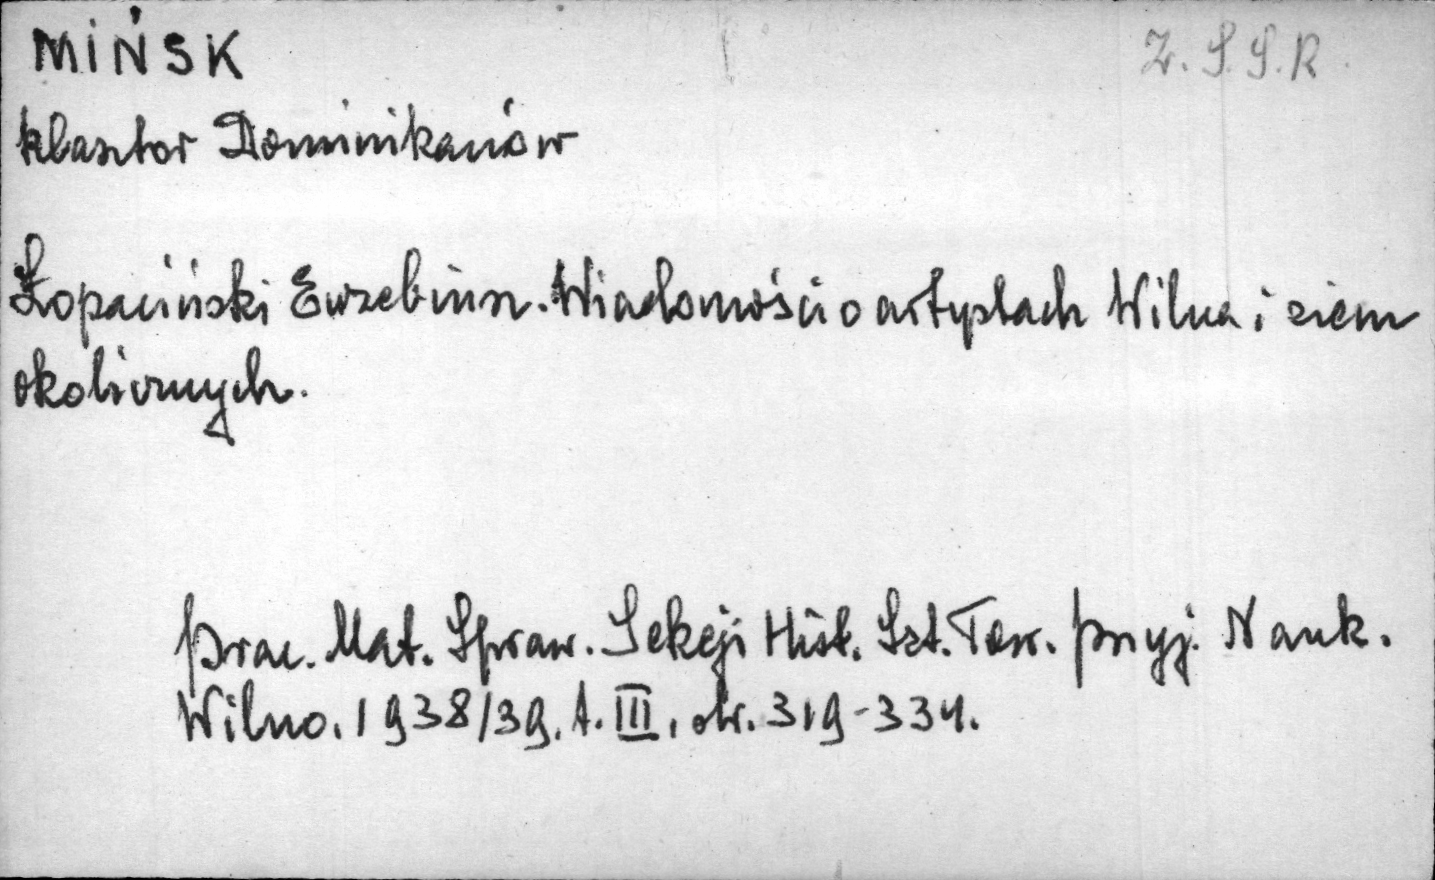 MIŃSK
Z. S. S. R.
klasztor Dominikanów
Łopaciński Euzebiusz. Wiadomości o artystach Wilna i ziem
okolicznych.
Prac. Mat. Spraw. Sekcji Hist. Szt. Tow. Przyj. Nauk.
Wilno. 1938/39. t. III, str. 319-334.